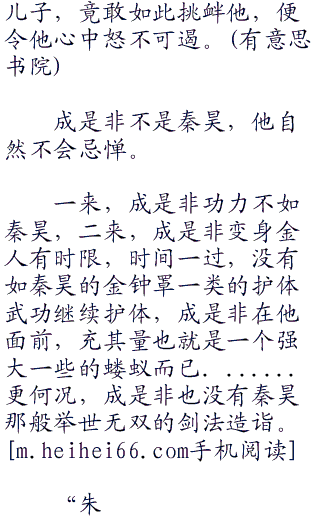 儿子，竟敢如此挑衅他，便
令他心中怒不可遏。(有意思
书院)
成是非不是秦昊，他自
然不会忌惮。
一来，成是非功力不如
秦昊，二来，成是非变身金
人有时限，时间一过，没有
如秦昊的金钟罩一类的护体
武功继续护体，成是非在他
面前，充其量也就是一个强
大一些的蝼蚁而已．．．．．．．
更何况，成是非也没有秦昊
那般举世无双的剑法造诣。
[m.heihei66.com手机阅读]
“朱